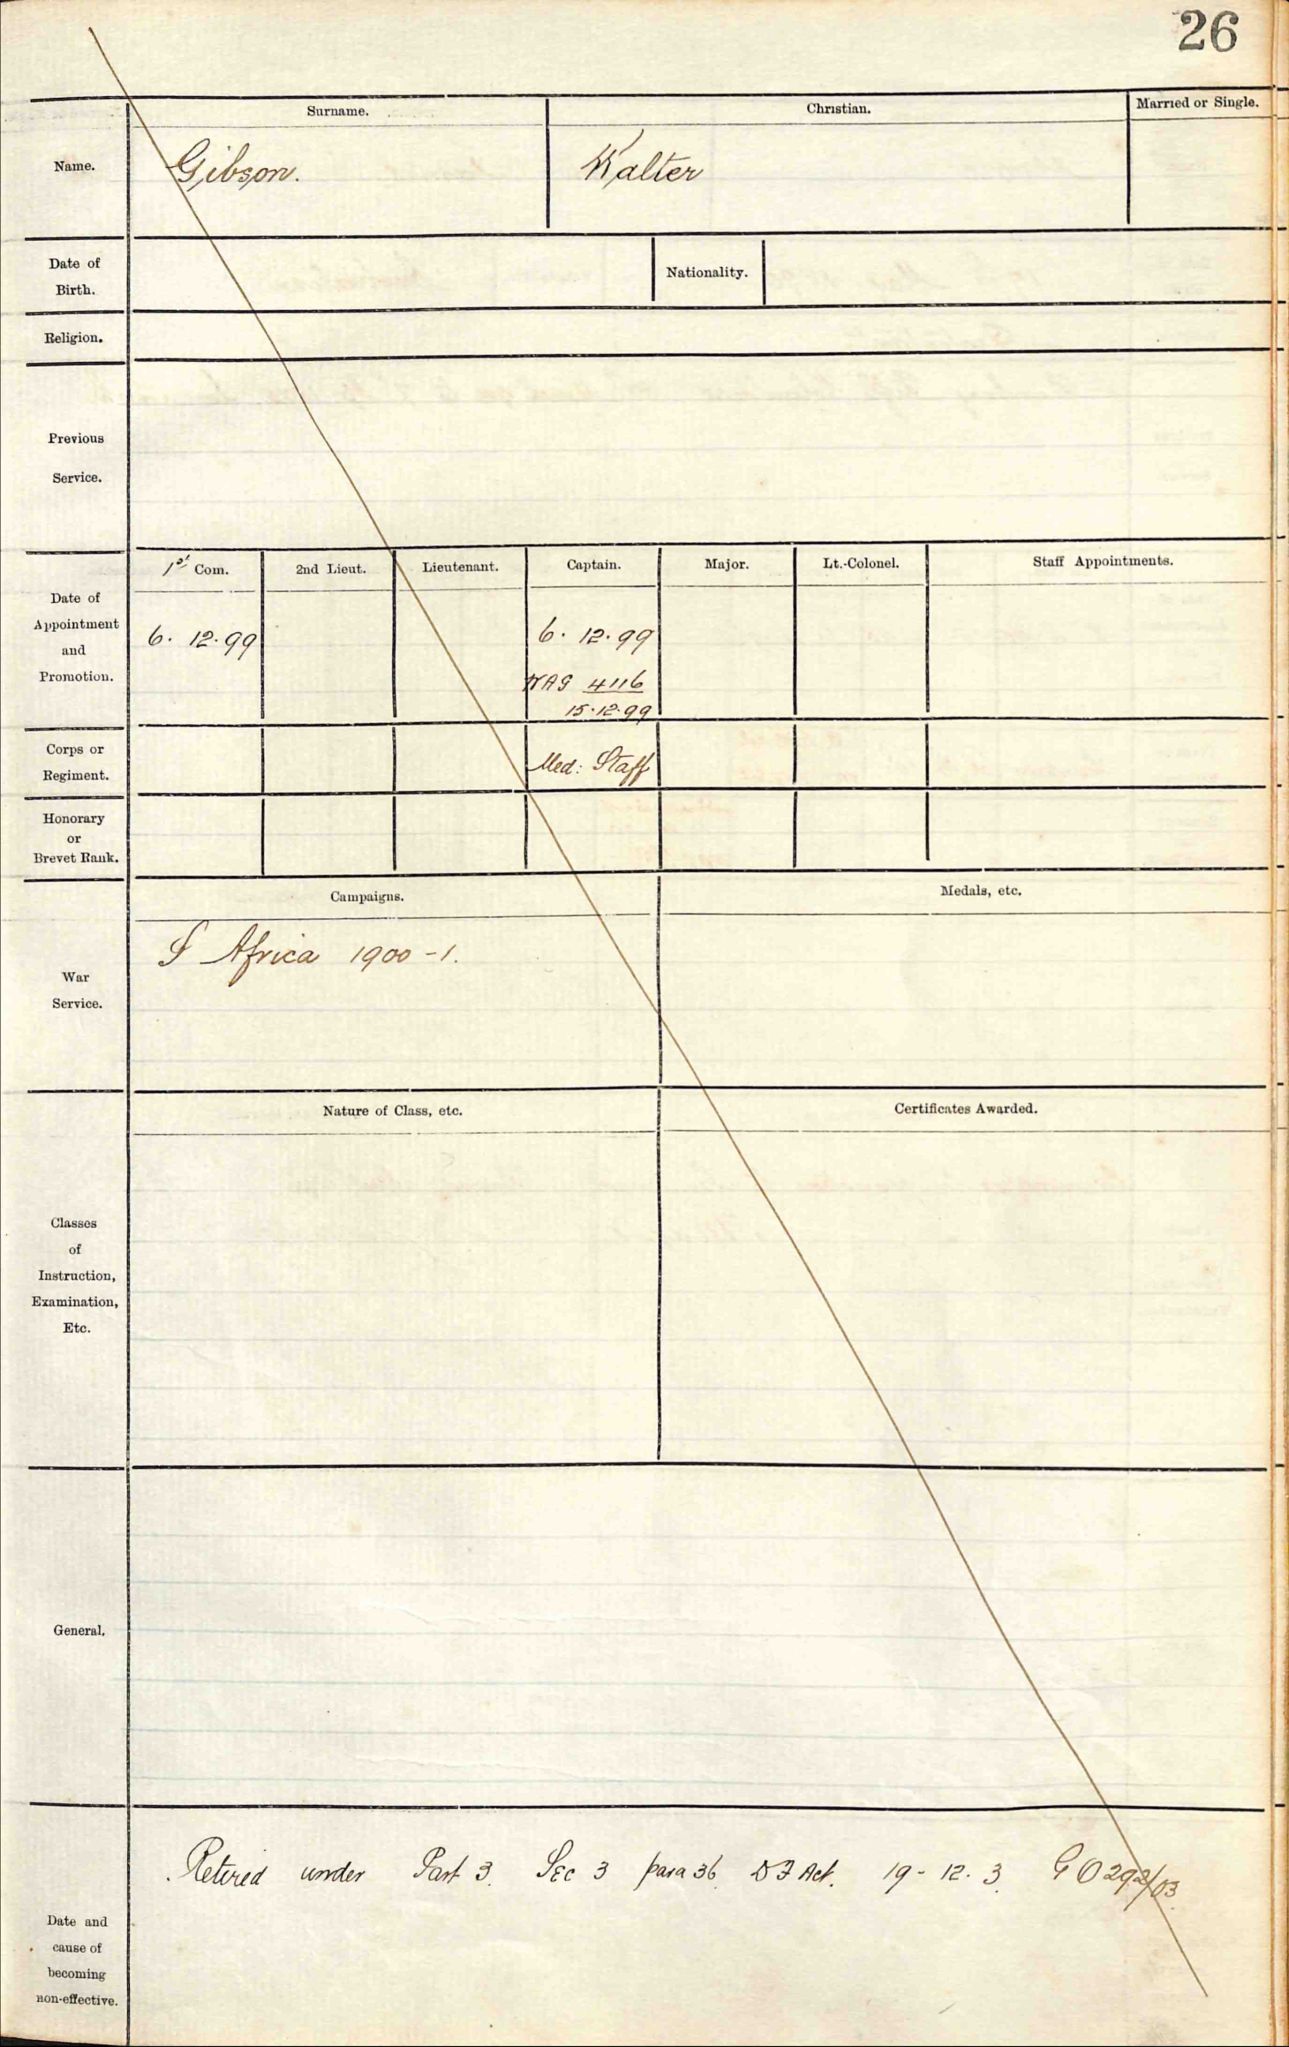 26
Surname.
Christian.
Married or Single.
Name.
Gibson.
Walter
Date of
Birth.
Nationality.
Religion.
Previous
Service.
1st Com.
2nd Lieut.
Lieutenant.
Captain.
Major.
Lt.-Colonel.
Staff Appointments.
Date of
Appointment
and
Promotion.
6. 12. 99
6. 12. 99
4116
15.12.99
Corps or
Regiment.
Med: Staff
Honorary
or
Brevet Rank.
Campaigns.
Medals, etc.
War
Service.
S Africa 1900-1.
Nature of Class, etc.
Certificates Awarded.
Classes
of
Instruction,
Examination,
Etc.
General.
Retired under Part 3. Sec 3 para 36 DF Act. 19-12.3. GO 292/03.
Date and
cause of
becoming
non-effective.